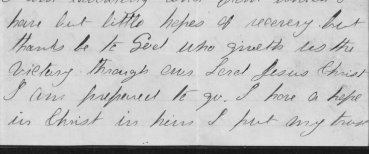 have but little hopes of recovery but
thanks be to God who giveth us the
victory through our Lord Jesus Christ
I am prepared to go. I have a hope
in Christ in him I put my trust